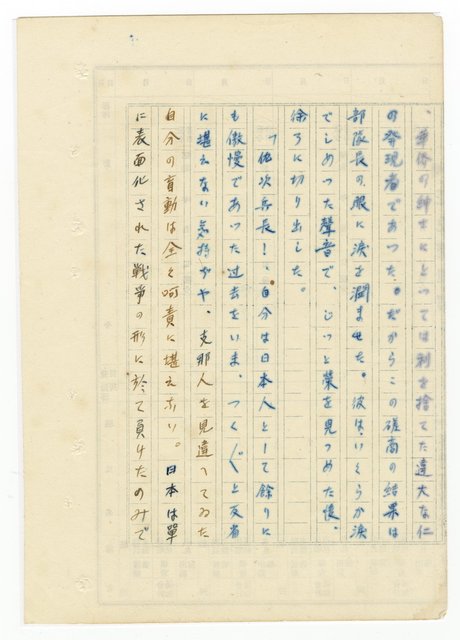 、華僑の紳士にとっては利を捨てた遠大な仁
の発現者であった。だからこの磋商の結果は
部隊長の眼に涙を潤ませた。彼はいくらか涙
でしめった聲音で、じっと榮を見つめた後、
徐ろに切り出した。
「佐次兵長!、自分は日本人として餘りに
も傲慢であった過去をいま、つくぐ〱と反省
に堪えない気持がや、支那人を見違へてゐた
自分の盲動は全く呵責に堪えない。日本は單
に表面化された戦爭の形に於て負けたのみで